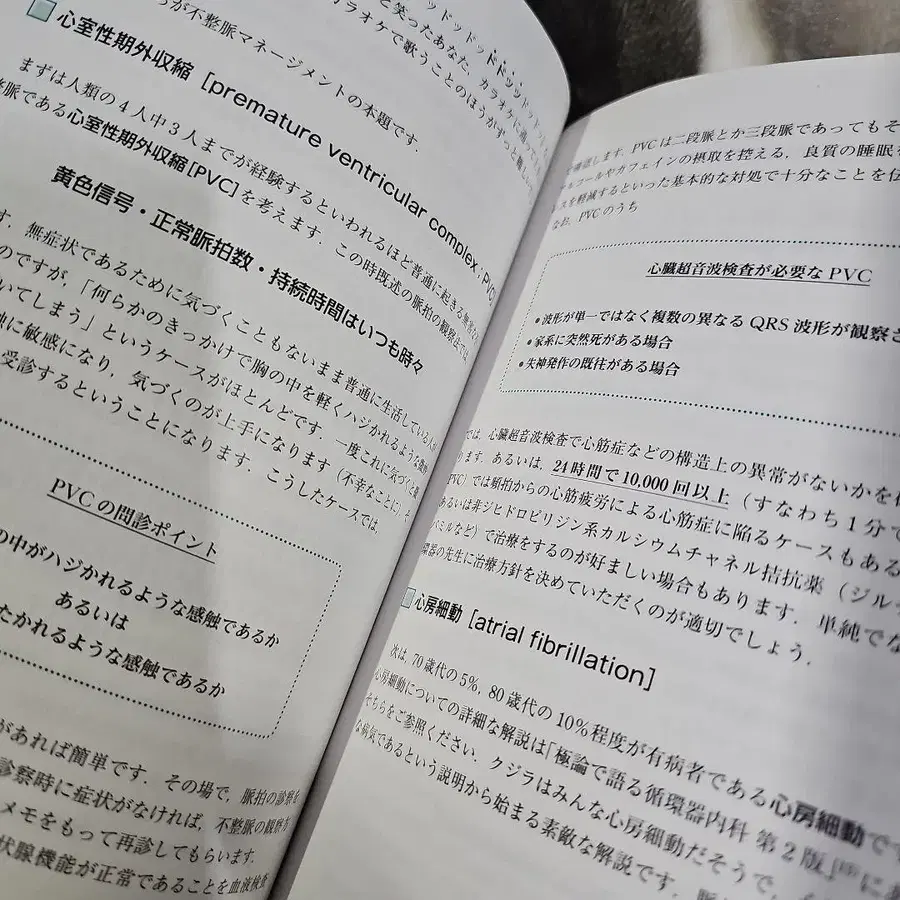 ッドッドッドドッツドッド
と笑ったあなた,カラオケに通って
カラオケで歌うことのほうがずっと難しい
が不整脈マネージメントの本題です.
心室性期外収縮 [premature ventricular complex:PVC]
まずは人類の4人中3人までが経験するといわれるほど普通に起きる無害な
脈である心室性期外収縮[PVC]を考えます.この時既述の脈拍の観察法では,
黄色信号・正常脈拍数・持続時間はいつも時々
す.無症状であるために気づくこともないまま普通に生活している人が
のですが,「何らかのきっかけで胸の中を軽くハジかれるような感触
いてしまう」というケースがほとんどです.一度これに気づくと
に敏感になり,気づくのが上手になります(不幸なことに).そ
受診するということになります.こうしたケースでは,
PVCの問診ポイント
の中がハジかれるような感触であるか
あるいは
たかれるような感触であるか
があれば簡単です.その場で,脈拍の診察を
診察時に症状がなければ,不整脈の観察方
メモをもって再診してもらいます.
状腺機能が正常であることを血液検査
します.PVCは二段脈とか三段脈であってもそ
アルコールやカフェインの摂取を控える,良質の睡眠を
スを軽減するといった基本的な対処で十分なことを伝
なお,PVCのうち
心臓超音波検査が必要なPVC
•波形が単一ではなく複数の異なるQRS波形が観察さ
•家系に突然死がある場合
•失神発作の既往がある場合
では,心臓超音波検査で心筋症などの構造上の異常がないかを
ります.あるいは,24時間で10,000回以上(すなわち1分で
PVC)では頻拍からの心筋疲労による心筋症に陥るケースもある
あるいは非ジヒドロピリジン系カルシウムチャネル拮抗薬(ジル
パミルなど)で治療をするのが好ましい場合もあります.単純でな
環器の先生に治療方針を決めていただくのが適切でしょう.
心房細動 [atrial fibrillation]
次は,70歳代の5%,80歳代の10%程度が有病者である心房細動で
心房細動についての詳細な解説は「極論で語る循環器内科 第2版」に
そちらをご参照ください.クジラはみんな心房細動だそうで,
な病気であるという説明から始まる素敵な解説です.脈